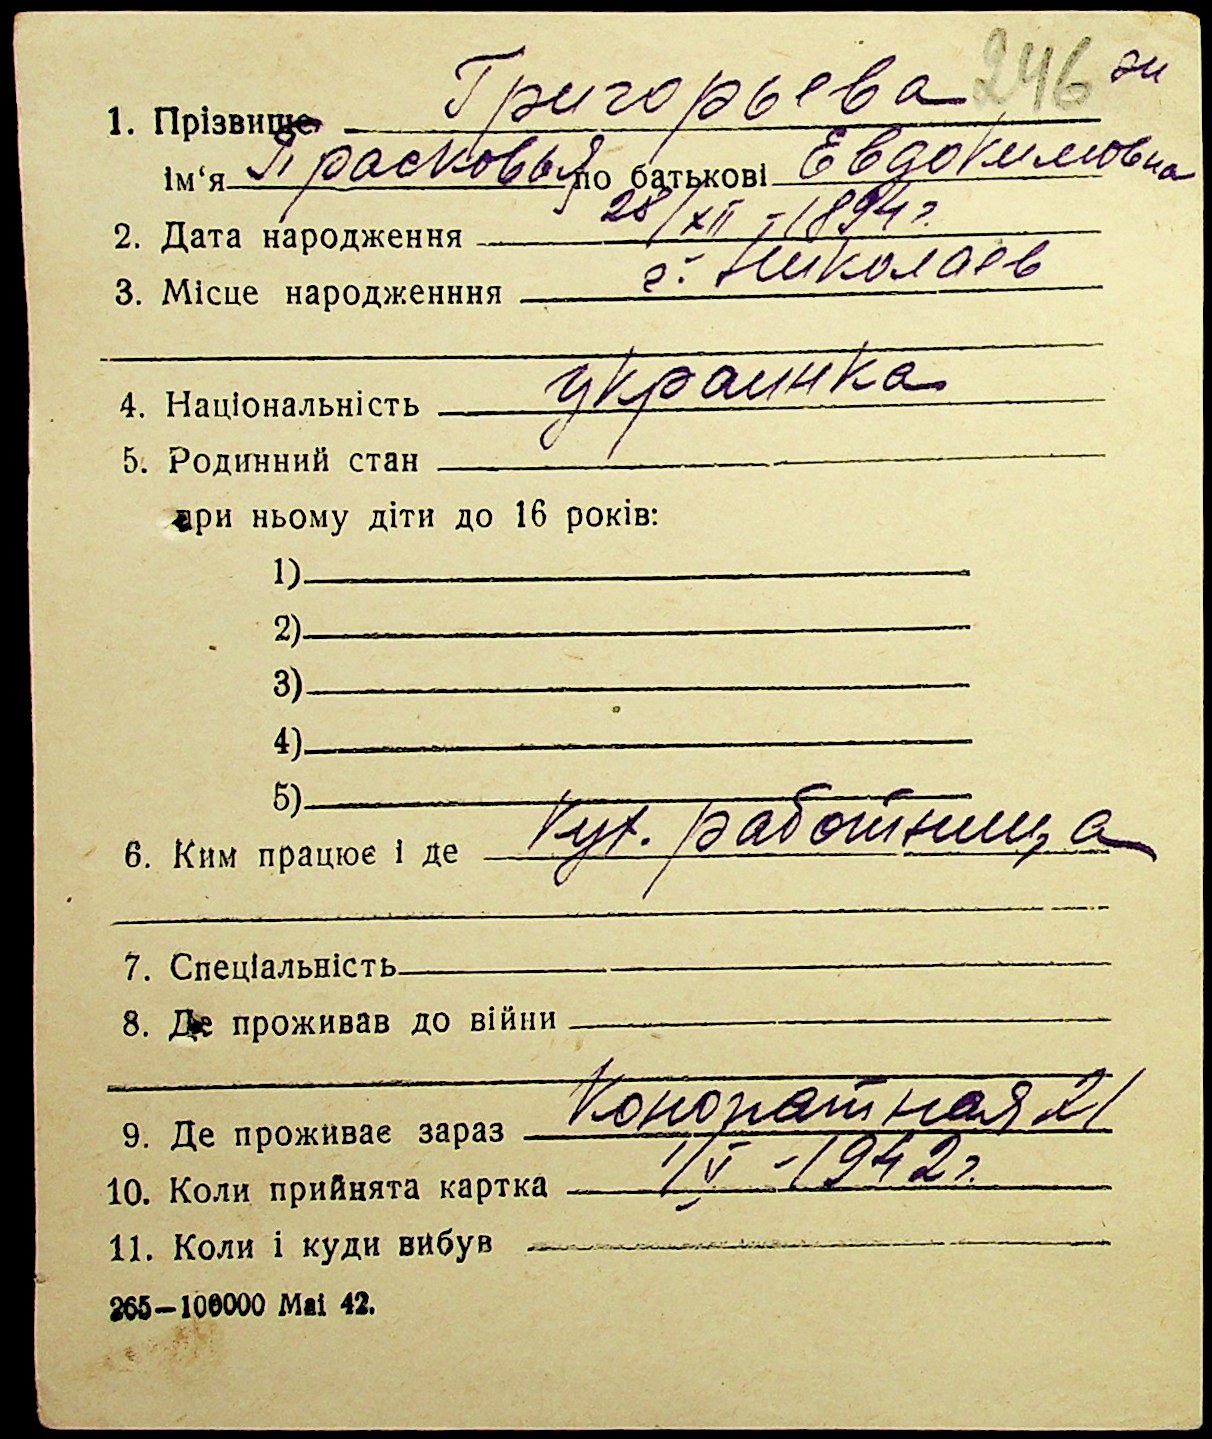 246 эи
1. Прізвище Григорьева
ім‘я Прасковья по батькові Евдокимовна
2. Дата народження 28/XII - 1894 г.
3. Місце народженння г. Николаев
4. Національність украинка
5. Родинний стан
при ньому діти до 16 років:
1)
2)
3)
4)
5)
6. Ким працює і де кух. работница
7. Спеціальність
8. Де проживав до війни
9. Де проживає зараз Конопатная 21
10. Коли прийнята картка 1/V - 1942 г.
11. Коли і куди вибув
265—100000 Маі 42.